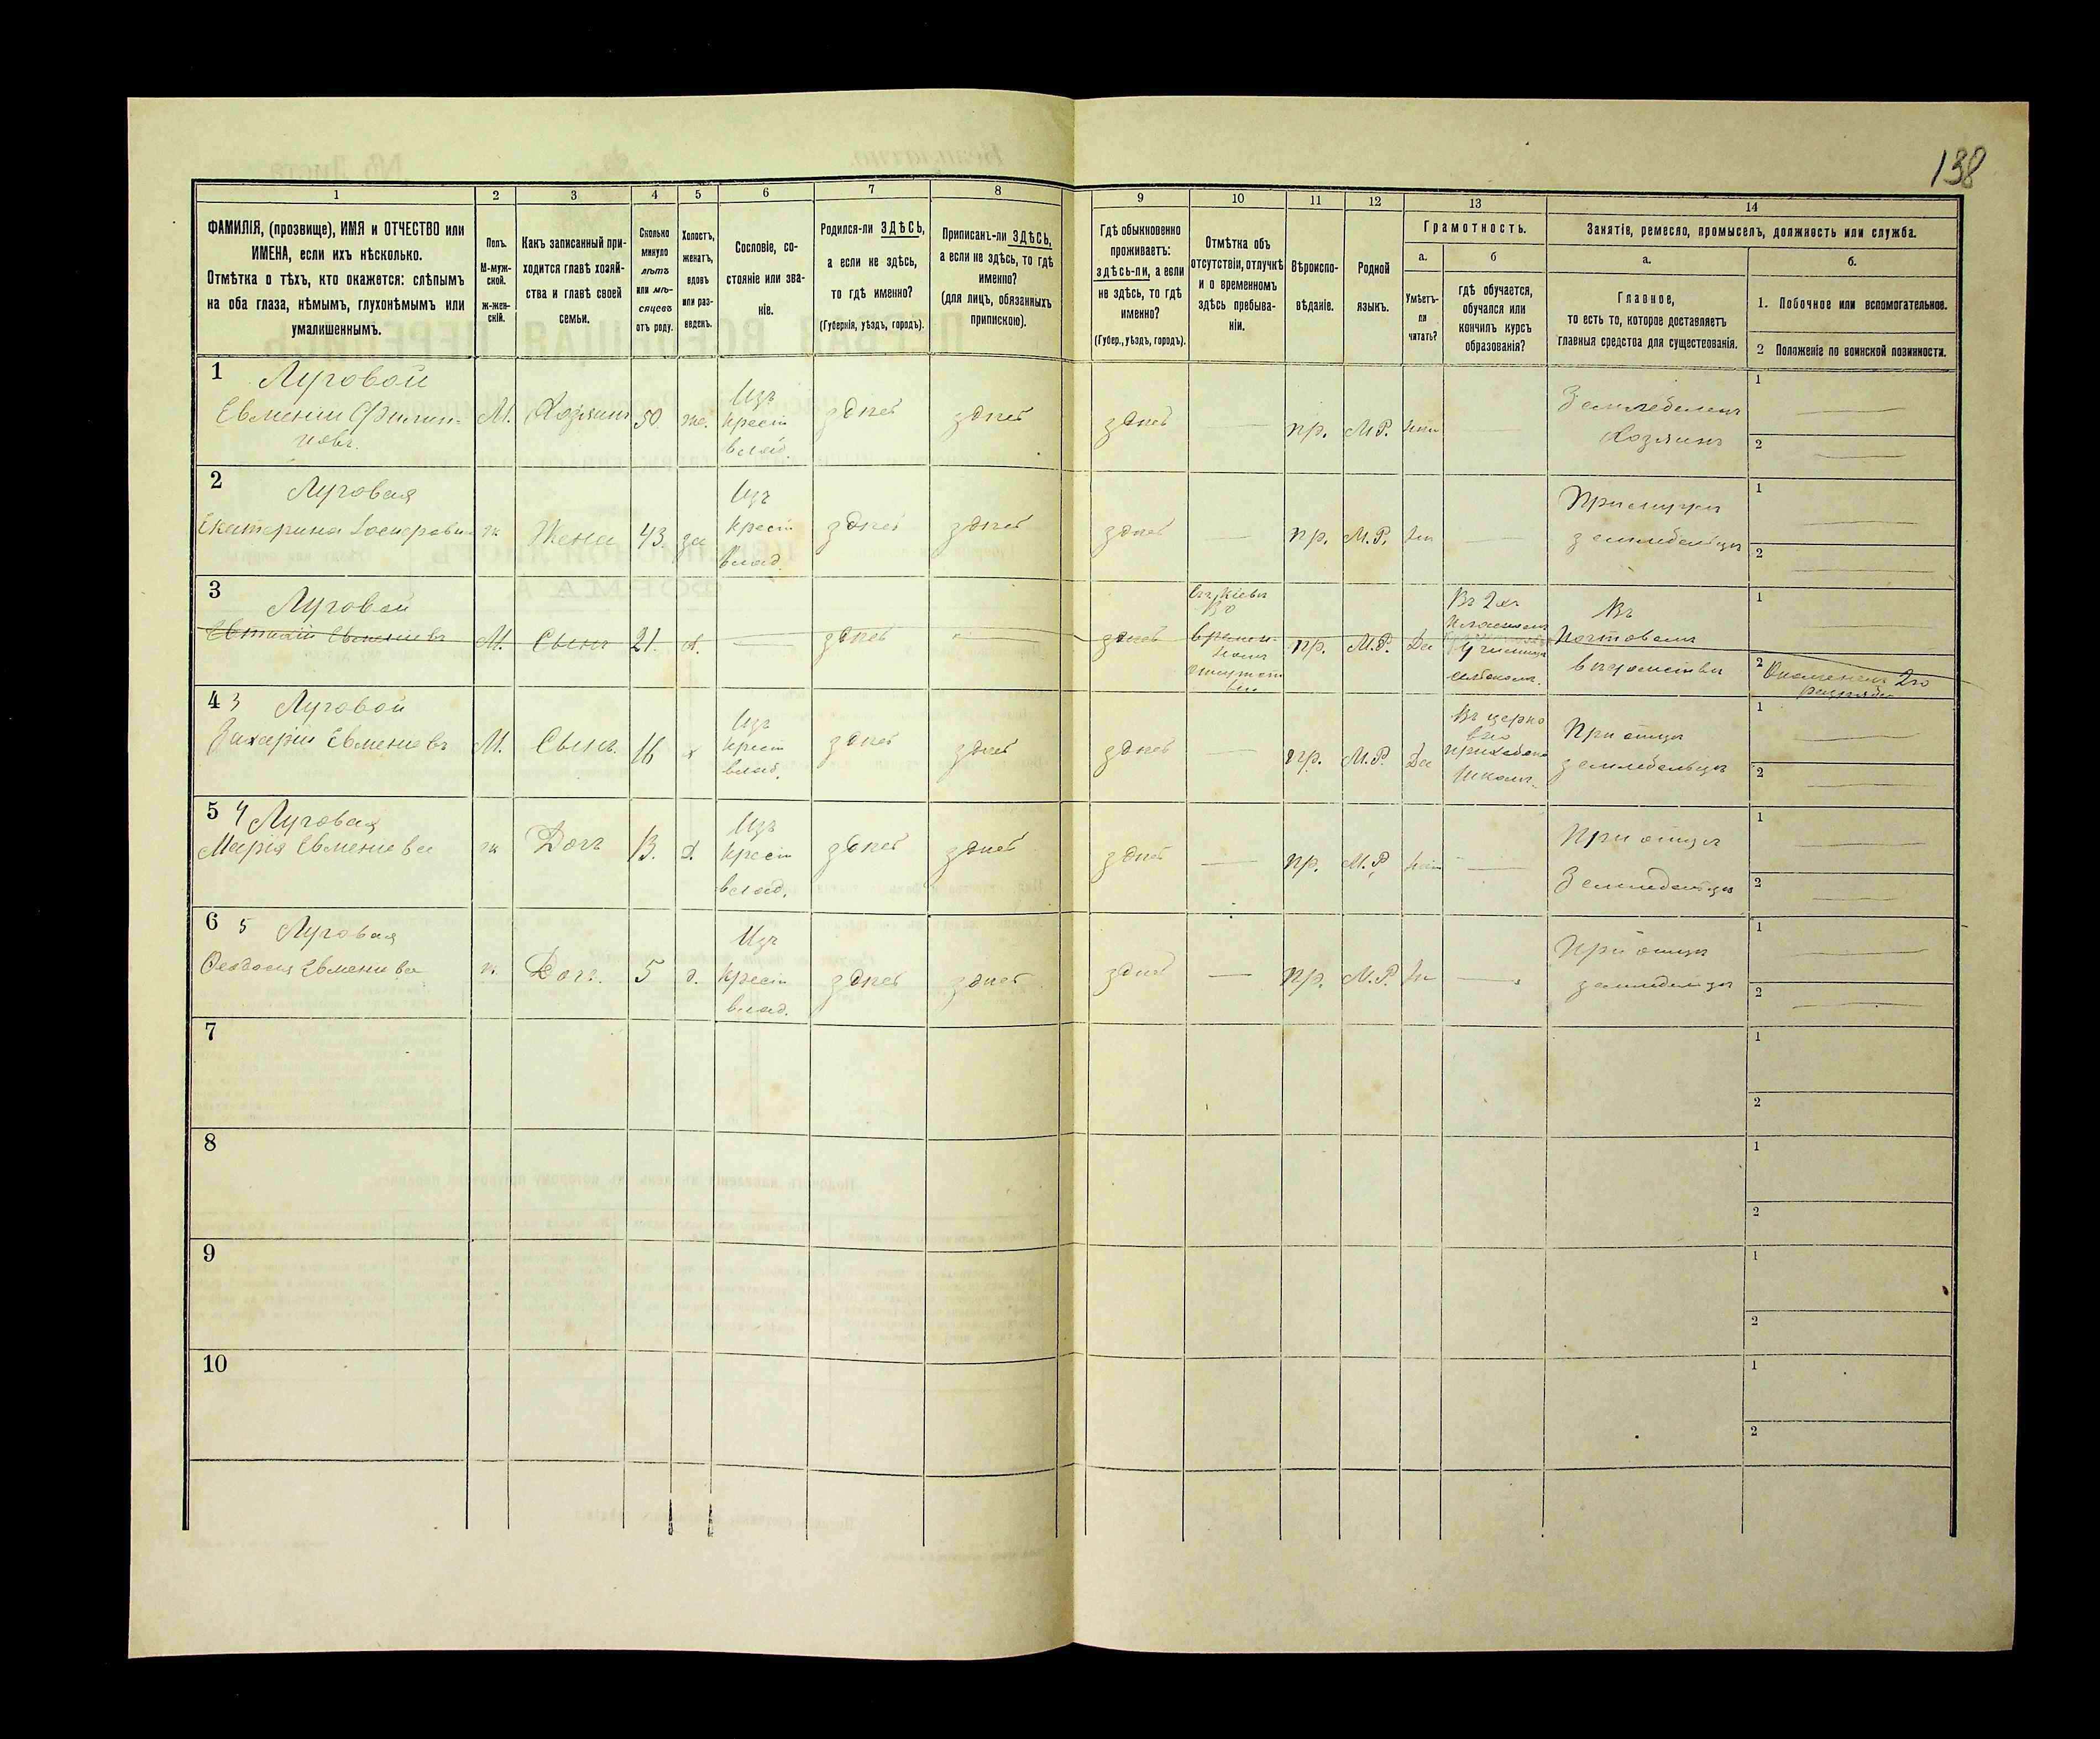 138
1
2
3
4
5
6
7
8
9
10
11
12
13
14
ФАМИЛІЯ, (прозвище), ИМЯ и ОТЧЕСТВО или
ИМЕНА, если ихъ нѣсколько.
Отмѣтка о тѣхъ, кто окажется: слѣпымъ
на оба глаза, нѣмымъ, глухонѣмымъ или
умалишеннымъ.
Полъ.
М-муж-
ской.
Ж-жен-
скій.
Какъ записанный при-
ходится главѣ хозяй-
ства и главѣ своей
семьи.
Сколько
минуло
лѣтъ
или мѣ-
сяцевъ
отъ роду.
Холостъ,
женатъ,
вдовъ
или раз-
веденъ.
Сословіе, со-
стояніе или зва-
ніе.
Родился-ли ЗДѢСЬ,
а если не здѣсь,
то гдѣ именно?
(Губернія, уѣздъ, городъ).
Приписанъ-ли ЗДѢСЬ,
а если не здѣсь, то гдѣ
именно?
(для лицъ, обязанныхъ
припискою).
Гдѣ обыкновенно
проживаетъ:
здѣсь-ли, а если
не здѣсь, то гдѣ
именно?
(Губер., уѣздъ, городъ).
Отмѣтка объ
отсутствіи, отлучкѣ
и о временномъ
здѣсь пребыва-
ніи.
Вѣроиспо-
вѣданіе.
Родной
языкъ.
Грамотность.
а.
Умѣетъ-
ли
читать?
б
гдѣ обучается,
обучался или
кончилъ курсъ
образованія?
Занятія, ремесло, промыселъ, должность или служба.
а.
Главное,
то есть то, которое доставляетъ
главныя средства для существованія.
б.
1. Побочное или вспомогательное.
2 Положеніе по воинской повинности.
1 Луговой
Евменій Филип-
повъ.
М. Хозяинъ 50. же.
Изъ
крест
влад.
здѣсь здѣсь здѣсь — пр. М.Р. нѣтъ —
Земледѣлецъ
Хозяинъ
1 —
2 —
2 Луговая
Екатерина
ж Жена 43 за
Изъ
крест
влад.
здѣсь здѣсь здѣсь — пр. М.Р. —
При мужѣ
земледѣльцѣ
1 —
2 —
3 Луговой
Евменіевъ
М. Сынъ 21. х. — здѣсь — здѣсь
въ Кіевѣ
во
времен-
номъ
отсутст
віи
пр. М.Р. Да
Въ 2хъ
классномъ
училищѣ
сельскомъ.
Въ
Почтовомъ
вѣдомствѣ
1 —
2 Ополченецъ 2го
разряда
4 3 Луговой
Захарій Евменіевъ
М. Сынъ. 16 х
Изъ
крест
влад.
здѣсь здѣсь здѣсь — пр. М.Р. Да
Въ церко
вно
приходско
школѣ.
При отцѣ
земледѣльцѣ
1 —
2 —
5 4 Луговая
Марія Евменіева
ж Дочь 13. д.
Изъ
крест
влад.
здѣсь здѣсь здѣсь — пр. М.Р. —
При отцѣ
Земледѣльцѣ
1 —
2 —
6 5 Луговая
Ѳеодосія Евменіева
ж. Дочь. 5 д.
Изъ
крест
влад.
здѣсь здѣсь здѣсь — пр. М.Р. —
При отцѣ
земледѣльцѣ
1 —
2 —
7
1
2
8
1
2
9
1
2
10
1
2